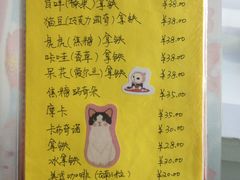 耳叶（榛果）拿铁 ¥38.00
猫豆（巧克力曲奇）拿铁 ¥38.00
虎虎（焦糖）拿铁 ¥38.00
咔哇（香草）拿铁 ¥38.00
呆花（黄尔兰）拿铁 ¥38.00
焦糖玛奇朵 ¥35.00
摩卡 ¥35.00
卡布奇诺 ¥30.00
拿铁 ¥28.00
冰拿铁 ¥30.00
美式咖啡 ¥20.00